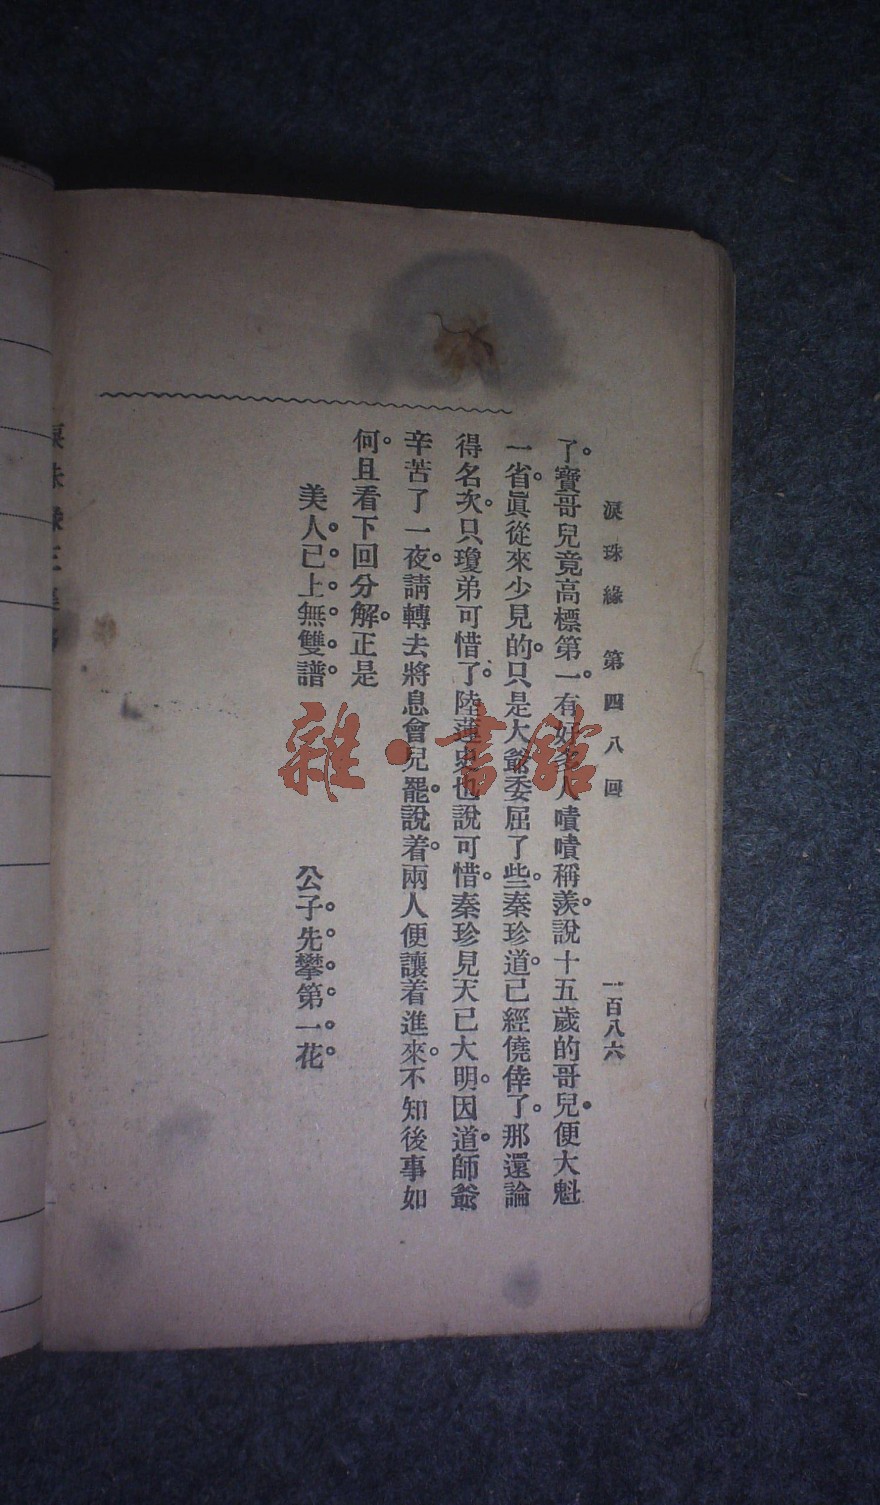 淚珠緣 第四八回 一百八六
了。寶哥兒竟高標第一。有好多人嘖嘖稱羨。說十五歲的哥兒。便大魁
一省。眞從來少見的。只是大爺委屈了些。秦珍道。已經僥倖了。那還論
得名次。只瓊弟可惜了。陸蓮史也說可惜。秦珍見天已大明。因道。師爺
辛苦了一夜。請轉去將息會兒罷。說着。兩人便讓着進來。不知後事如
何。且看下回分解。正是
美人已上無雙譜。 公子先攀第一花。
雜·書館